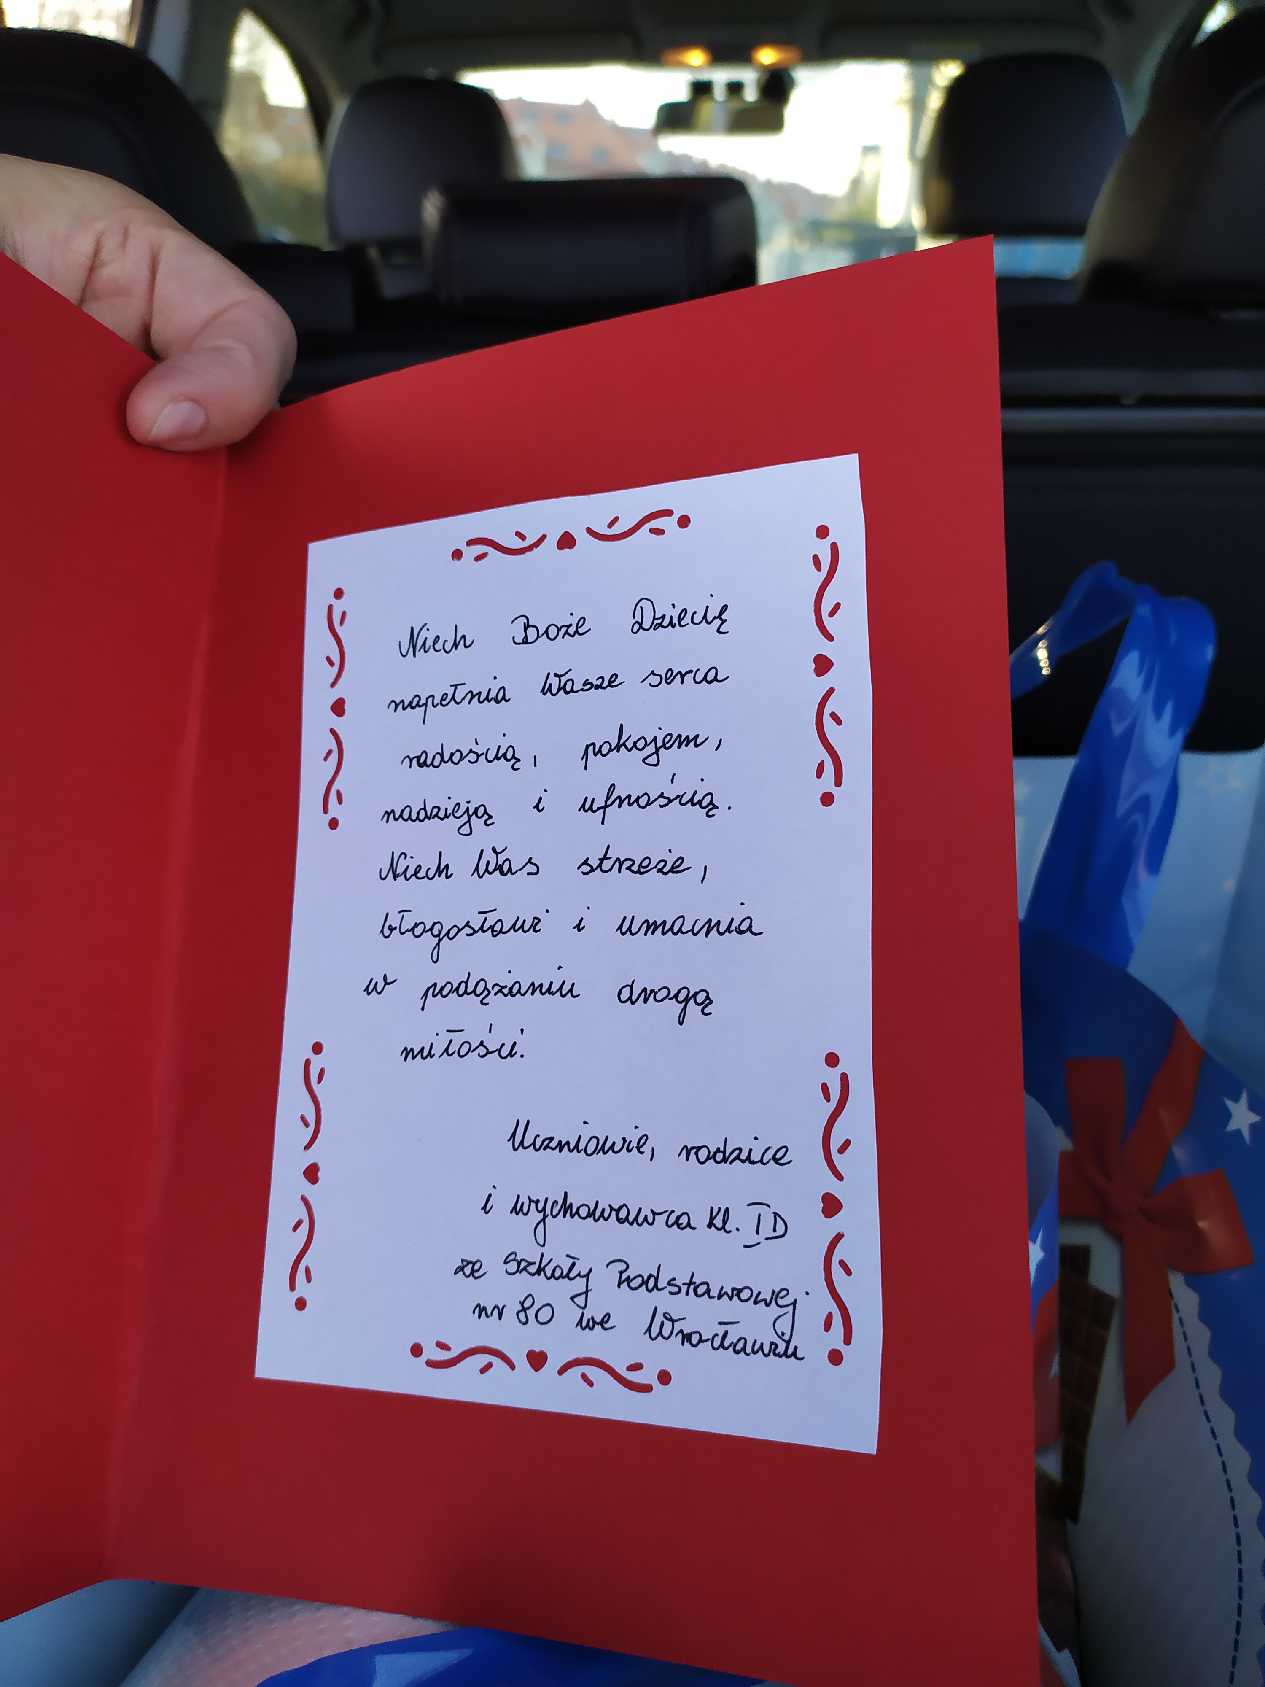 Niech Boże Dziecię
napełnia Wasze serca
radością, pokojem,
nadzieją i ufnością.
Niech Was strzeże,
błogosławi i umacnia
w podążaniu drogą
miłości.
Uczniowie, rodzice
i wychowawca kl. ID
ze Szkoły Podstawowej
nr 80 we Wrocławiu